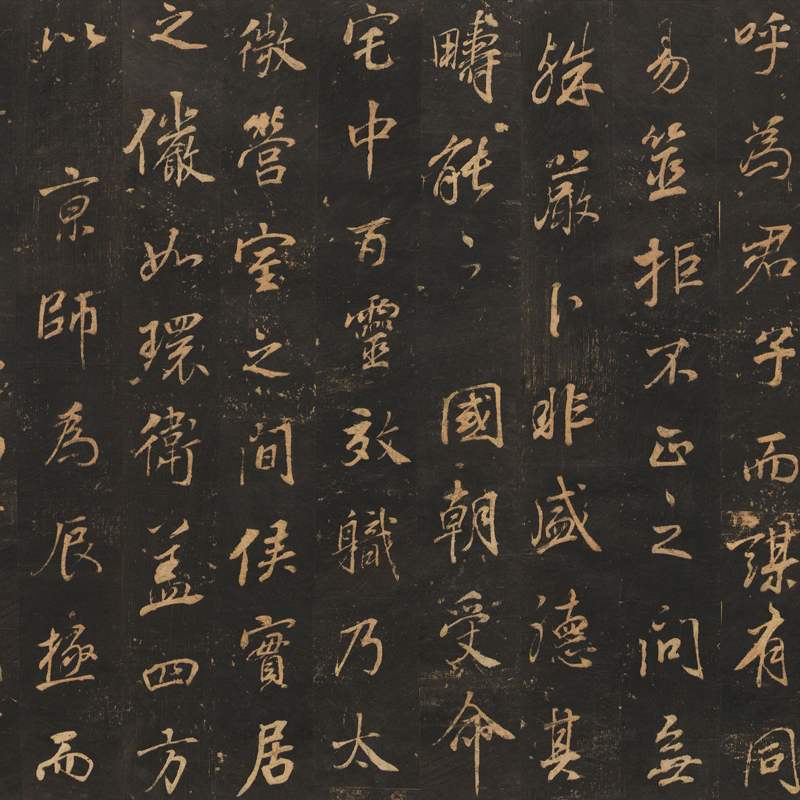 呼為君子而謀有同
易筮拒不正之問無
殊嚴卜非盛德其
疇能〻 國朝受命
宅中百靈效職乃太
微營室之間侯實居
之儼如環衛蓋四方
以 京師為辰極而